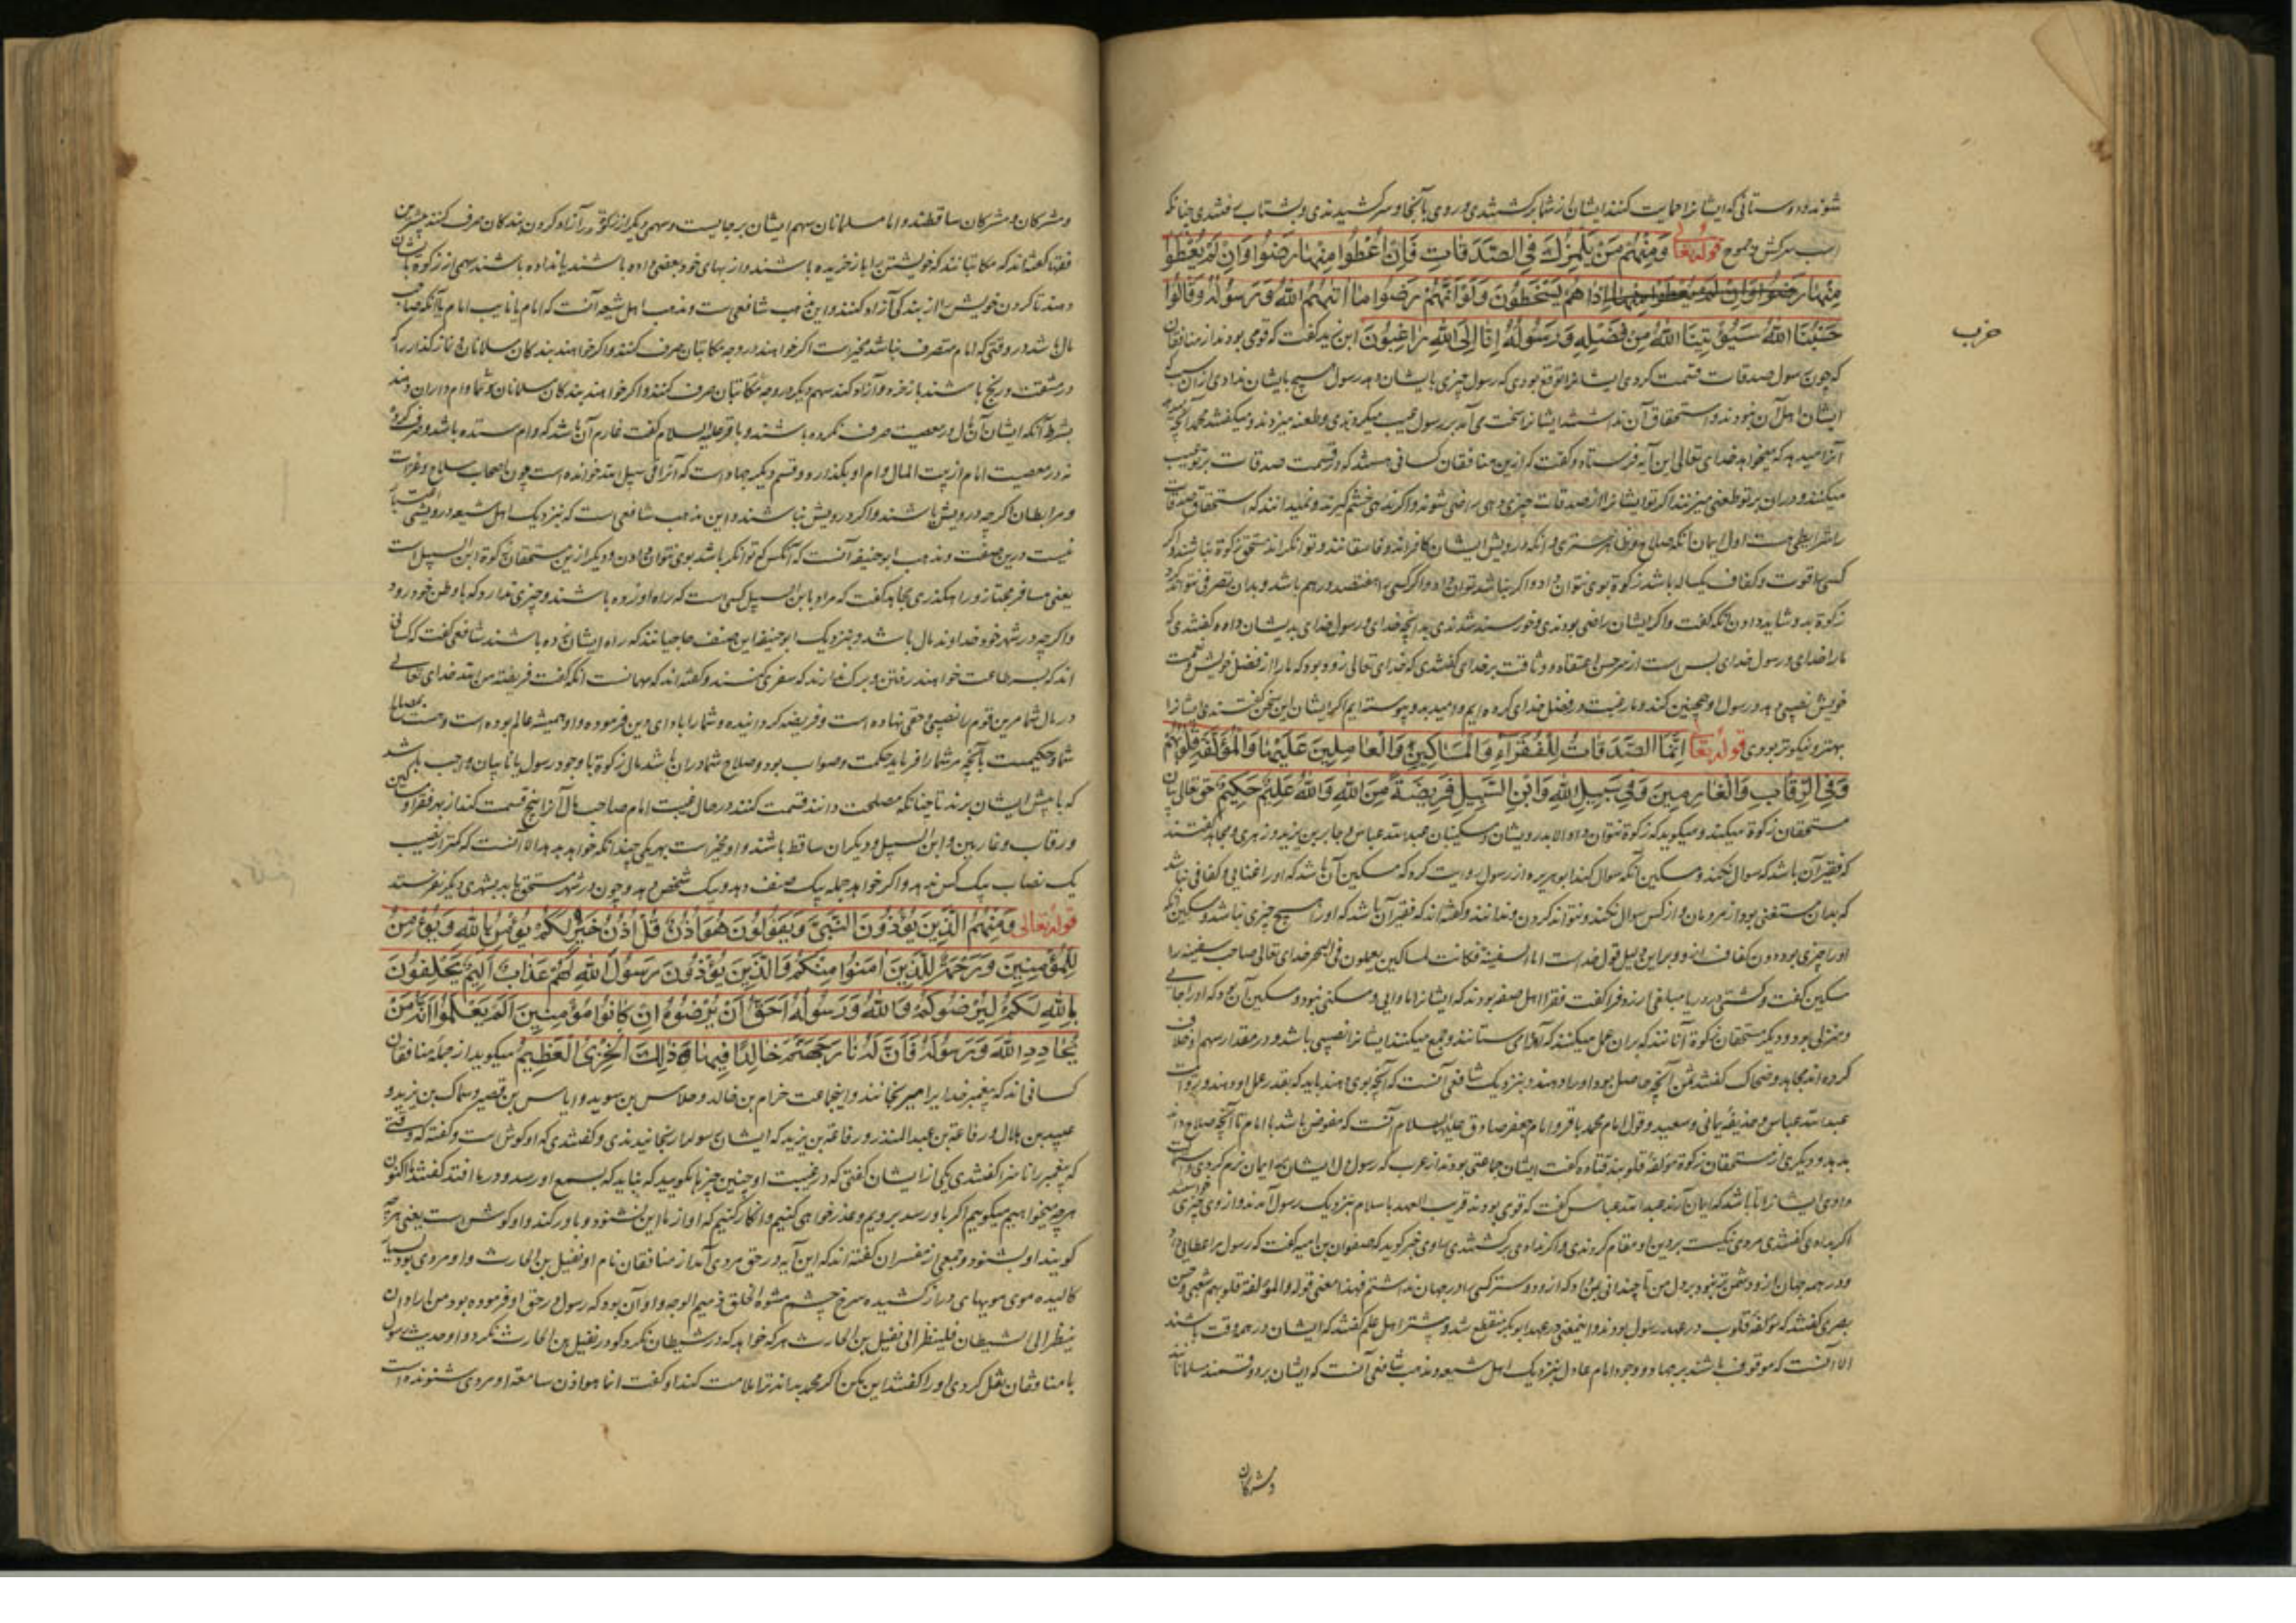 شوند و دوستانی که ایشانرا حمایت کنند ایشان از شما برگشتندی و روی بآنجا و سر کشیدندی و بشتاب رفتندی چنانکه
اسب سرکش جموح قوله تعالی وَمِنْهُمْ مَنْ يَلْمِزُكَ فِي الصَّدَقَاتِ فَإِنْ أُعْطُوا مِنْهَا رَضُوا وَإِنْ لَمْ يُعْطَوْا
مِنْهَا رَضُوا وَإِنْ لَمْ يُعْطَوْا مِنْهَا إِذَا هُمْ يَسْخَطُونَ وَلَوْ أَنَّهُمْ رَضُوا مَا آتَيهُمُ اللَّهُ وَرَسُولُهُ وَقَالُوا
حَسْبُنَا اللَّهُ سَيُؤْتِينَا اللَّهُ مِنْ فَضْلِهِ وَرَسُولُهُ إِنَّا إِلَى اللَّهِ رَاغِبُونَ ابن زید گفت که قومی بودند از منافقان
حزب
که چون رسول صدقات قسمت کردی ایشانرا توقع بودی که رسول چیزی بایشان دهد رسول هیچ بایشان ندادی از آن سبب که
ایشان اهل آن نبودند و استحقاق آن نداشتند ایشانرا سخت می آمد بر رسول عیب میکردندی و طعنه میزدند و میگفتند محمد آنچه
آنرا میدهد که میخواهد خدای تعالی این آیه فرستاد و گفت که ازین منافقان کسانی هستند که در قسمت صدقات بر تو عیب
میکنند و دران بر تو طعنی میزنند اگر تو ایشانرا از صدقات چیزی دهی راضی شوند و اگر ندهی خشم گیرند و نمیدانند که استحقاق صدقات
را شرایطی هست اول ایمان
کسی را قوت و کفاف یکساله باشد زکوة بوی نتوان داد و اگر نباشد توان داد و اگر کسی را هفتصد درهم باشد و بدان تصرف نتواند کرد
زکوة بدو شاید دادن آنکه گفت و اگر ایشان راضی بودندی و خورسند شدندی بدانچه خدای و رسول خدای بدیشان داده و گفتندی که
ما را خدای و رسول خدای بس است از سر حسن اعتقاد و وثاقت بر خدای گفتندی که خدای تعالی زود بود که ما را از فضل خویش و نعمت
خویش نصیبی دهد و رسول او همچنین کند و ما رغبت در فضل خدای کرده ایم و امید بدو پیوسته ایم اگر ایشان این سخن گفتندی ایشانرا
بهتر و نیکوتر بودی قوله تعالی إِنَّمَا الصَّدَقَاتُ لِلْفُقَرَاءِ وَالْمَسَاكِينِ وَالْعَامِلِينَ عَلَيْهَا وَالْمُؤَلَّفَةِ قُلُوبُهُمْ
وَفِي الرِّقَابِ وَالْغَارِمِينَ وَفِي سَبِيلِ اللَّهِ وَابْنِ السَّبِيلِ فَرِيضَةً مِنَ اللَّهِ وَاللَّهُ عَلِيمٌ حَكِيمٌ حق تعالی بیان
مستحقان زکوة میکند و میگوید که زکوة نتوان داد الا بدرویشان و مسکینان عبد الله عباس و جابر بن یزید و زهری و مجاهد گفتند
که فقیر آن باشد که سوال نکند و مسکین آنکه سوال کند ابوهریره از رسول روایت کرد که مسکین آن باشد که او را غنایی و کفافی نباشد
که بدان مستغنی بود از مردمان و از کس سوال نکند و نتواند کردن و ندانند و گفته اند که فقیر آن باشد که او را هیچ چیزی نباشد و مسکین آنکه
او را چیزی بود دون کفاف او و برین دلیل قول خداست اما السفینة فکانت لمساکین یعملون فی البحر خدای تعالی صاحب سفینه را
مسکین گفت و کشتی در دریا مبلغی ارزد فرا گفت فقرا اهل صفه بودند که ایشانرا ماوایی و مسکنی نبود و مسکین آن بود که او را جایی
و منزلی بود و دیگر مستحقان زکوة آنانند که بران عمل میکنند که آنرا می ستانند و جمع میکنند ایشانرا نصیبی باشد و در مقدار سهم او خلاف
کرده اند مجاهد و ضحاک گفتند ثمن آنچه حاصل بود او را دهند و بنزدیک شافعی آنست که آنچه بوی دهند باید که بقدر عمل او دهند و بروایت
عبد الله عباس و حذیفه یمانی و سعید و قول امام محمد باقر و امام جعفر صادق علیه السلام آنست که مفوض باشد با امام تا آنچه صلاح داند
بدهد و دیگری از مستحقان زکوة مؤلفه قلوبند قتاده گفت ایشان جماعتی بودند از عرب که رسول دل ایشان به ایمان نرم کردی و
دادی ایشانرا تا باشد که ایمان آرند عبد الله عباس گفت که قومی بودند قریب العهد باسلام بنزدیک رسول آمدند و از وی چیزی خواستند
اگر بدادی گفتندی مردی نیکست بر دین او مقام کردندی و اگر ندادی برگشتندی راوی خبر گوید که صفوان بن امیه گفت که رسول مرا عطایی داد
و در همه جهان ازو دشمن تر نبود بر دل من تا چندانی بمن داد که ازو دوستر کسی را در جهان نداشتم فهذا معنی قوله والمؤلفة قلوبهم شعبی و حسن
بصری گفتند که مؤلفه قلوب در عهد رسول بودند و این معنی در عهد ابوبکر منقطع شد و بیشتر اهل علم گفتند که ایشان در همه وقت باشند
الا آنست که موقوف باشند بر جهاد و وجود امام عادل بنزدیک اهل شیعه و مذهب شافعی آنست که ایشان بر دو قسمند مسلمانان
و مشرکان
و مشرکان و مشرکان ساقطند و اما مسلمانان سهم ایشان بر جایست و سهمی دیگر از زکوة در آزاد کردن بندکان صرف کنند بیشترین
فقها گفته اند که مکاتبانند که خویشتن را باز خریده باشند و از بهای خود بعضی داده باشند یا نداده باشند سهمی از زکوة بایشان
دهند تا گردن خویش را از بندکی آزاد کنند و این مذهب شافعی است و مذهب اهل شیعه آنست که امام یا نایب امام یا آنکه صاحب
مال باشد در وقتی که امام متصرف نباشد مخیر است اگر خواهند در وجه مکاتبان صرف کنند و اگر خواهند بندکان مسلمانان و نماز گذار را که
در مشقت و رنج باشند بازخرد و آزاد کند سهم دیگر در وجه
بشرط آنکه ایشان آن مال در معصیت صرف نکرده باشند و باقر علیه السلام گفت غارم آن باشد که وام ستده باشد و صرف کرده
نه در معصیت امام از بیت المال وام او بگذارد و قسم دیگر جهاد است که آنرا فی سبیل الله خوانده است چون اصحاب سلاح و غزات
و مرابطان اگر چه درویش باشند و اگر درویش نباشند و این مذهب شافعی است که بنزدیک اهل شیعه درویشی
نیست درین صنف و مذهب ابوحنیفه آنست که آنکس که توانگر باشد بوی نتوان دادن و دیگر ازین مستحقان زکوة ابن السبیل است
یعنی مسافر مجتاز و راهگذری مجاهد گفت که مراد بابن السبیل کسی است که راه او زده باشند و چیزی ندارد که با وطن خود رود
و اگر چه در شهر خود خداوند مال باشد و بنزدیک ابوحنیفه این صنف حاجیانند که راه ایشان زده باشند شافعی گفت که کسانی
اند که بسر طاعت خواهند رفتن و برک ندارند که سفری کنند و گفته اند که مهمانست آنکه گفت فریضة من الله خدای تعالی
در مال شما مرین قوم را نصیبی و حقی نهاده است و فریضه گردانیده و شما را بادای این فرموده و او همیشه عالم بوده است و هست بمصالح
شما و حکیمست بآنچه مر شما را فرماید حکمت و صواب بود و صلاح شما دران باشد مال زکوة با وجود رسول یا نایبان واجب باشد
که با پیش ایشان برند تا چنانکه مصلحت دانند قسمت کنند در حال غیبت امام صاحب مال آنرا پنج قسمت کند از بهر فقرا و مساکین
و رقاب و غارمین و ابن السبیل و دیگران ساقط باشند و او مخیر است بهر یکی چندانکه خواهد بدهد الا آنست که کمتر از نصیب
یک نصاب بیک کس ندهد و اگر خواهد جمله بیک صنف دهد و بیک شخص دهد و چون در شهر مستحق یابد بشهری دیگر نفرستد
قوله تعالی وَمِنْهُمُ الَّذِينَ يُؤْذُونَ النَّبِيَّ وَيَقُولُونَ هُوَ أُذُنٌ قُلْ أُذُنُ خَيْرٍ لَكُمْ يُؤْمِنُ بِاللَّهِ وَيُؤْمِنُ
لِلْمُؤْمِنِينَ وَرَحْمَةٌ لِلَّذِينَ آمَنُوا مِنْكُمْ وَالَّذِينَ يُؤْذُونَ رَسُولَ اللَّهِ لَهُمْ عَذَابٌ أَلِيمٌ يَحْلِفُونَ
بِاللَّهِ لَكُمْ لِيُرْضُوكُمْ وَاللَّهُ وَرَسُولُهُ أَحَقُّ أَنْ يُرْضُوهُ إِنْ كَانُوا مُؤْمِنِينَ أَلَمْ يَعْلَمُوا أَنَّهُ مَنْ
يُحَادِدِ اللَّهَ وَرَسُولَهُ فَأَنَّ لَهُ نَارَ جَهَنَّمَ خَالِدًا فِيهَا ذَلِكَ الْخِزْيُ الْعَظِيمُ میگوید از جمله منافقان
کسانی اند که پیغمبر خدایرا میرنجانند و این جماعت خرام بن خالد و جلاس بن سوید و ایاس بن قصیر و سماک بن یزید و
عبید بن هلال و رفاعة بن عبد المنذر و رفاعة بن یزید که ایشان رسول را رنجانیدندی و گفتندی که او گوش است و گفته که وقتی
که پیغمبر را ناسزا گفتندی یکی از ایشان گفتی که در غیبت او چنین چیزها مگویید که نباید که بسمع او رسد و در ما افتد گفتند ما اکنون
هر چه میخواهیم میگوییم اگر باو رسد برویم و عذر خواهی کنیم و انکار کنیم که او از ما این بشنود و باور کند و او گوش است یعنی هر چه
گویند او بشنود و جمعی از مفسران گفته اند که این آیه در حق مردی آمد از منافقان نام او نفیل بن الحارث و او مردی بود سیاه
کالیده موی مویهای دراز کشیده سرخ چشم مشوه الخلق ذمیم الوجه و او آن بود که رسول در حق او فرموده بود من اراد ان
ینظر الی الشیطان فلینظر الی نفیل بن الحارث هر که خواهد که در شیطان نگرد گو در نفیل بن الحارث نگرد و او حدیث رسول
با منافقان نقل کردی او را گفتند این مکن اگر محمد بداند ترا ملامت کند او گفت انما هو اذن سامعة او مردی شنونده است